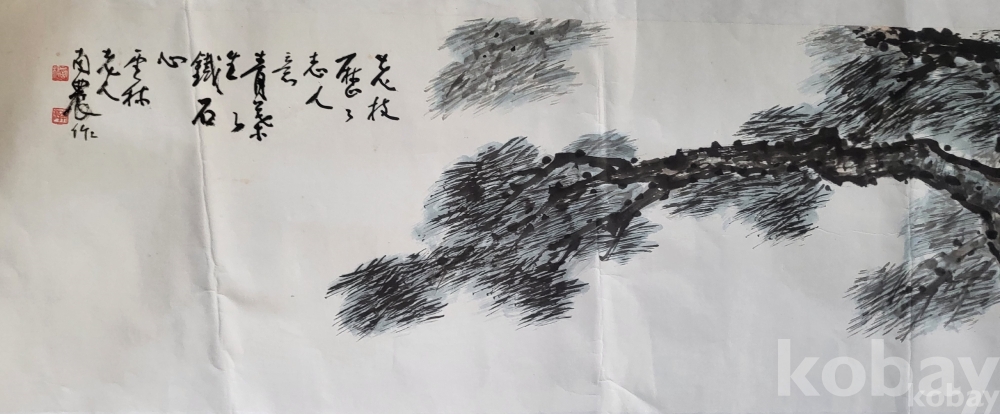 老枝
歷々
志人
意
青葉
鐵石
心
雲林
老人
南農作
kobay
kobay